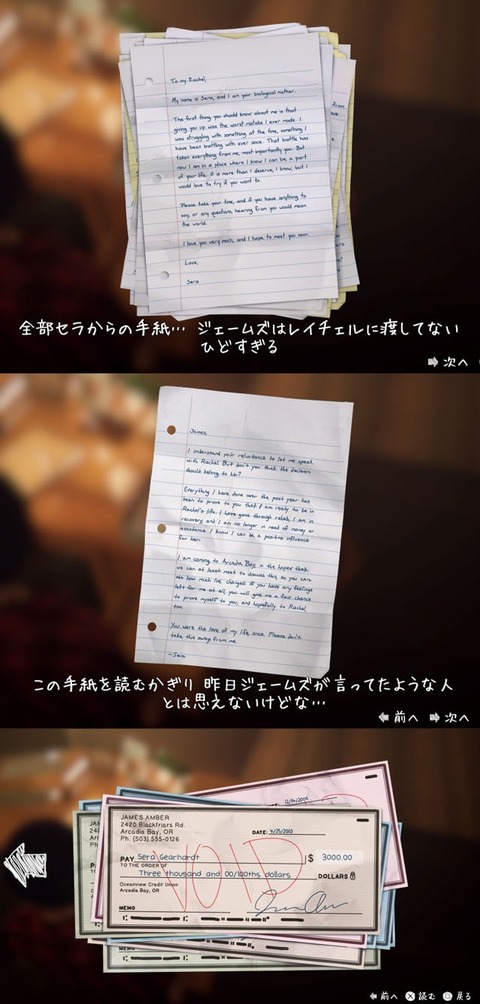 To my Rachel,
My name is Sera, and I am your biological mother.
The first thing you should know about me is that
giving you up was the worst mistake I ever made. I
was struggling with something at the time, something I
have been battling with ever since. That battle has
taken everything from me, most importantly you. But
now I am in a place where I know I can be a part
of your life. It is more than I deserve, I know, but I
would love to try if you want to.
Please take your time, and if you have anything to
say, or any questions, hearing from you would mean
the world.
I love you very much, and I hope to meet you soon.
Love,
Sera
全部セラからの手紙… ジェームズはレイチェルに渡してない
ひどすぎる
次へ
James,
I understand your reluctance to let me speak
with Rachel. But don't you think the decision
should belong to her?
Everything I have done over the past year has
been to prove to you that I am ready to be in
Rachel's life. I have gone through rehab, I am in
recovery, and I am no longer in need of money or
assistance. I know I can be a positive influence
for her.
I am coming to Arcadia Bay, in the hopes that
we can at least meet to discuss this, so you can
see how much I've changed. If you have any feelings
left for me at all, you will give me a fair chance
to prove myself to you, and hopefully to Rachel
too.
You were the love of my life once. Please don't
take this away from me.
-Sera
この手紙を読むかぎり 昨日ジェームズが言ってたような人
とは思えないけどな…
前へ 次へ
JAMES AMBER
2420 Blackfriars Rd.
Arcadia Bay, OR
Ph. (503) 555-0126
DATE: 4/25/2010
PAY Sera Gearhardt $ 3000.00
TO THE ORDER OF
Three thousand and 00/100ths dollars DOLLARS
Oceanview Credit Union
Arcadia Bay, OR
MEMO
VOID
前へ 読む 戻る